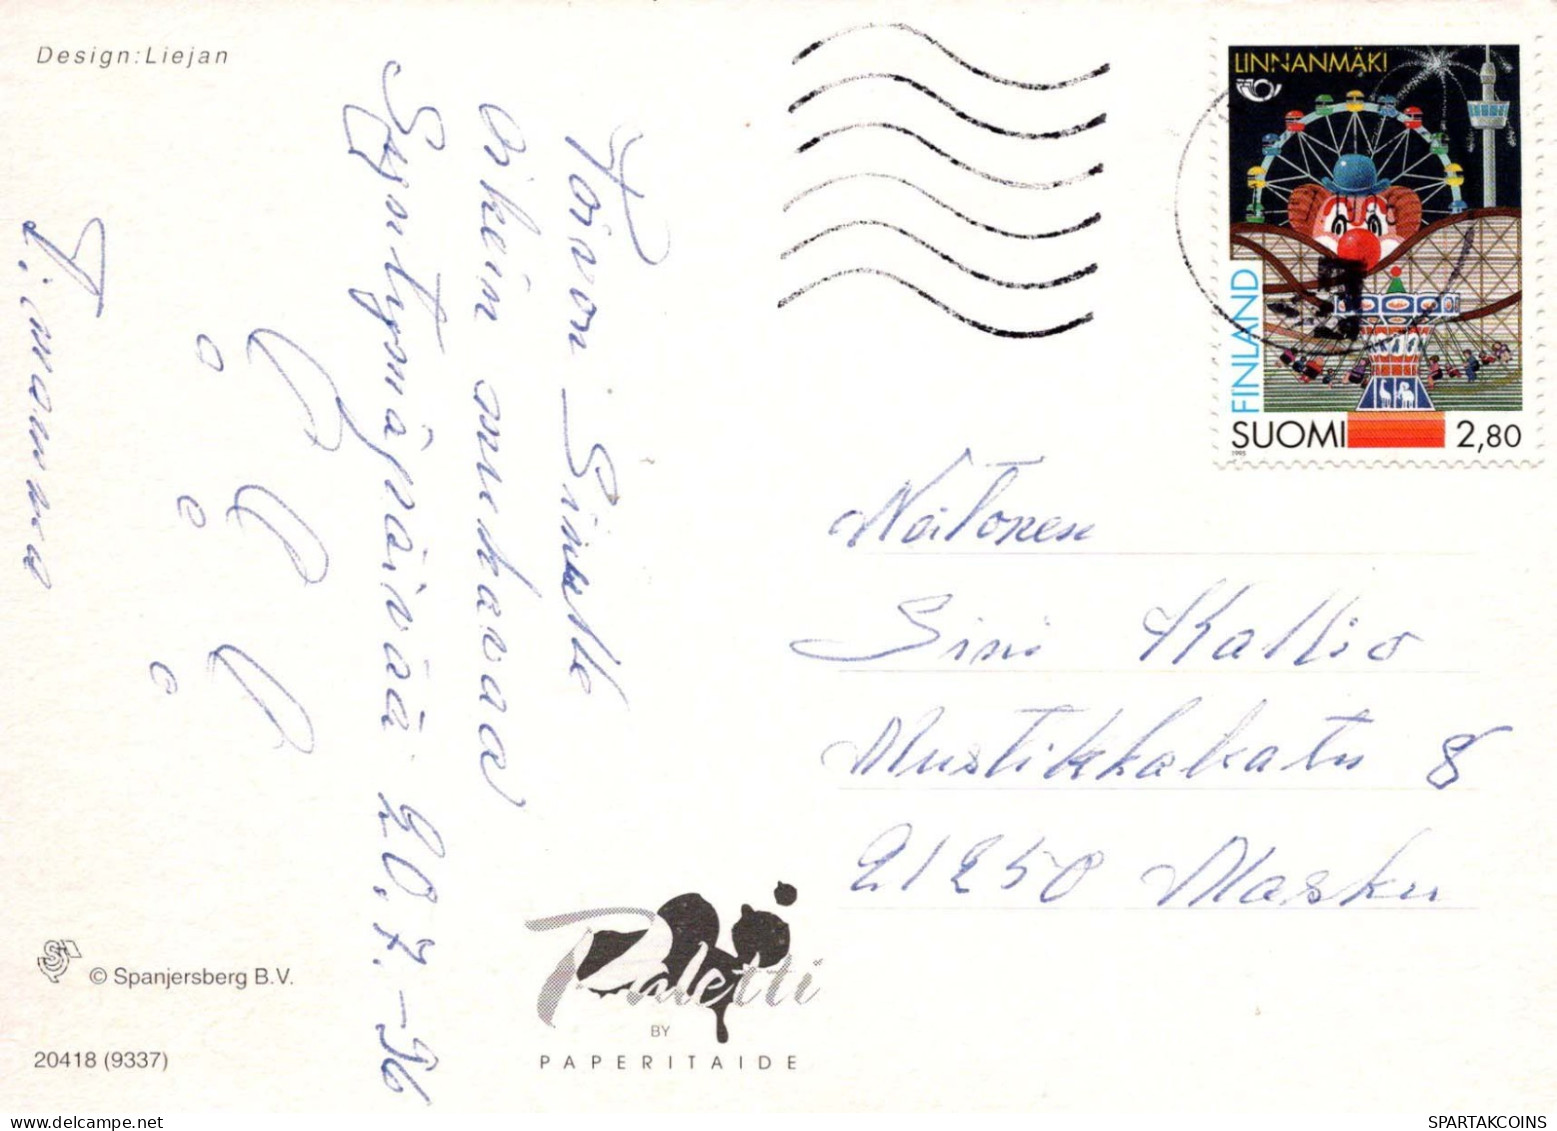 Design:Liejan
Toivon Sinulle
oikein mukavaa
Syntymäpäivää 20.7.-96
T: mamma
© Spanjersberg B.V.
20418 (9337)
Paletti
BY
PAPERITAIDE
LINNANMÄKI
FINLAND
SUOMI 2,80
1995
Neitonen
Sini Kallio
Mustikkakatu 8
21250 Masku
SPARTAKCOINS.COM